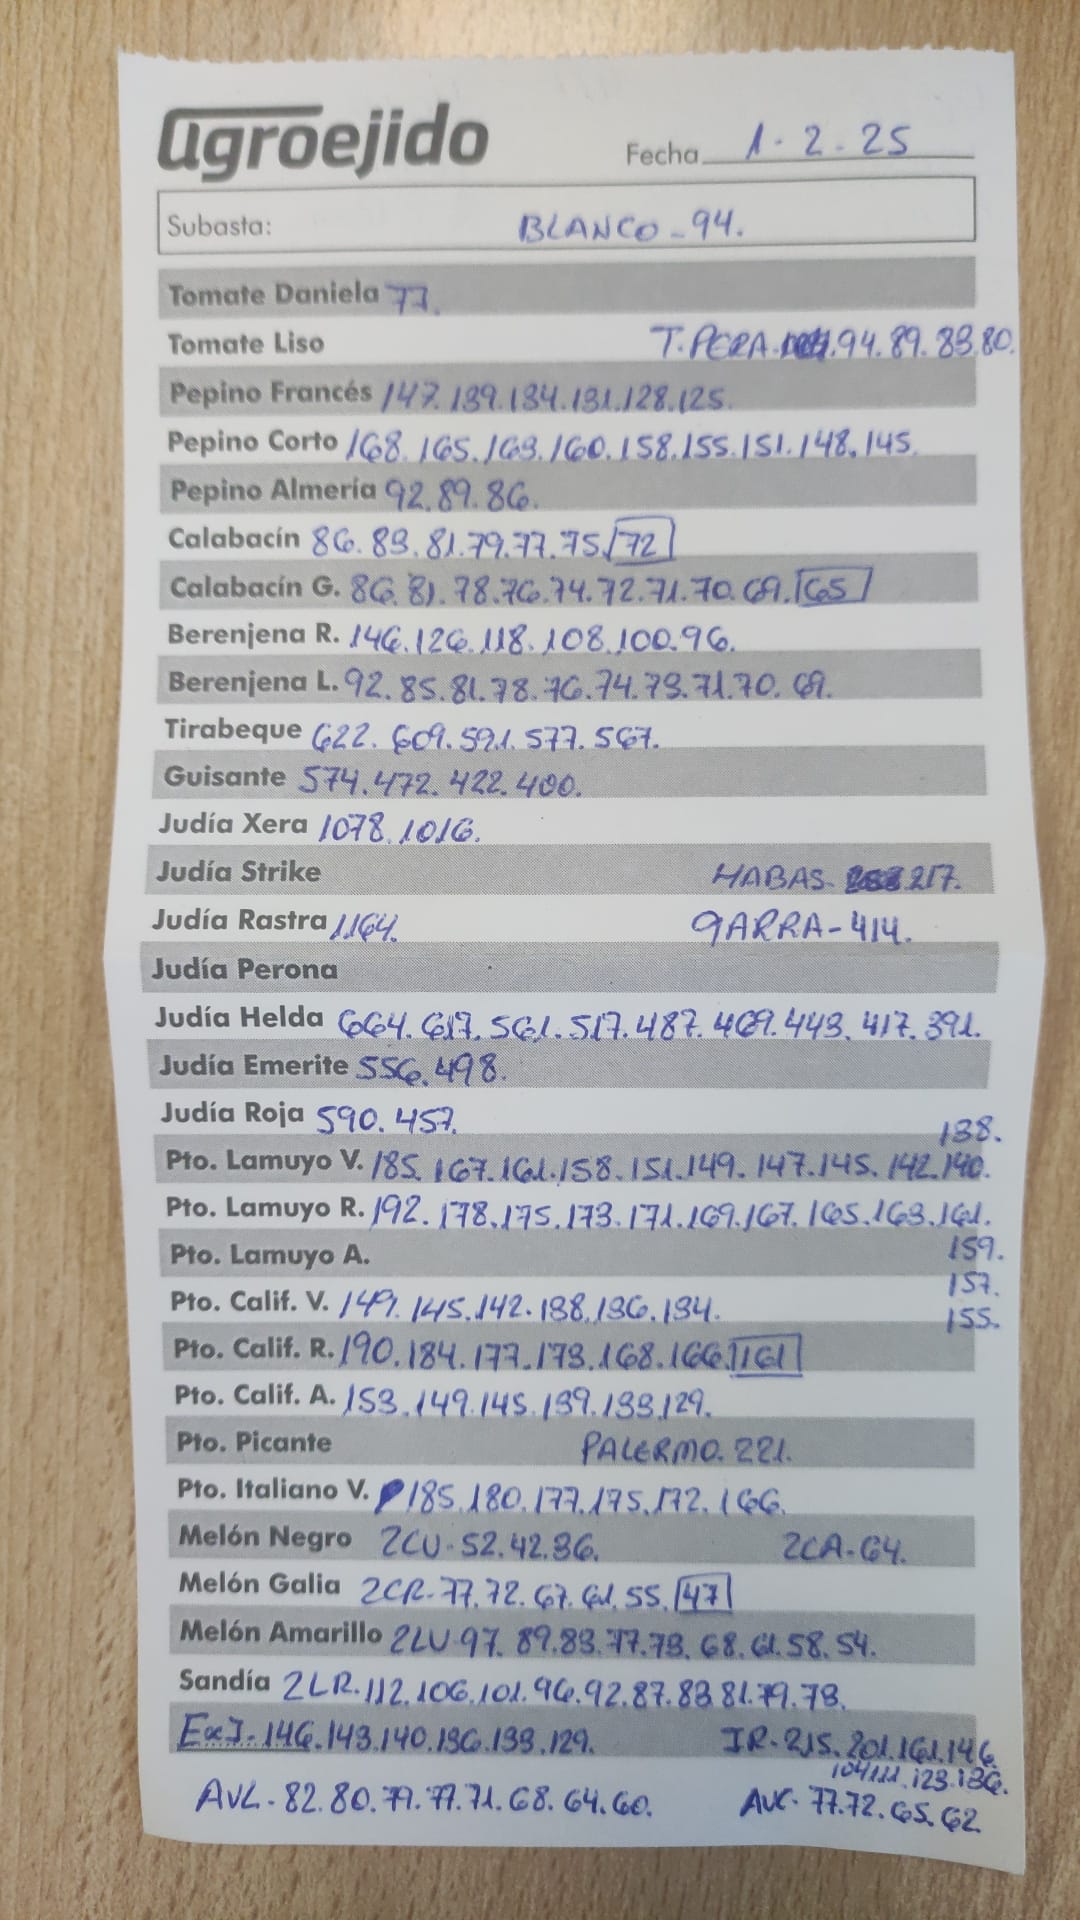 agroejido
Fecha 1.2.25
Subasta: BLANCO-94.
Tomate Daniela 77.
Tomate Liso T.PERA. 94.89.83.80.
Pepino Francés 147.139.134.131.128.125.
Pepino Corto 168.165.163.160.158.155.151.148.145.
Pepino Almería 92.89.86.
Calabacín 86.83.81.79.77.75.72
Calabacín G. 86.81.78.76.74.72.71.70.69.65
Berenjena R. 146.126.118.108.100.96.
Berenjena L. 92.85.81.78.76.74.73.71.70.69.
Tirabeque 622.609.591.577.567.
Guisante 574.472.422.400.
Judía Xera 1078.1016.
Judía Strike HABAS. 217.
Judía Rastra 1164. GARRA-414.
Judía Perona
Judía Helda 664.617.561.517.487.469.443.417.391.
Judía Emerite 556.498.
Judía Roja 590.457.
138.
Pto. Lamuyo V. 185.167.161.158.151.149.147.145.142.140.
Pto. Lamuyo R. 192.178.175.173.171.169.167.165.163.161.
Pto. Lamuyo A. 159.
157.
Pto. Calif. V. 149.145.142.138.136.134. 155.
Pto. Calif. R. 190.184.177.173.168.166.161
Pto. Calif. A. 153.149.145.139.133.129.
Pto. Picante PALERMO. 221.
Pto. Italiano V. 185.180.177.175.172.166.
Melón Negro 2CU-52.42.36. 2CA-64.
Melón Galia 2CR-77.72.67.61.55.47
Melón Amarillo 2LU-97.89.83.77.73.68.61.58.54.
Sandía 2LR.112.106.101.96.92.87.83.81.79.73.
ExJ-146.143.140.136.133.129. IR-215.201.161.146
104.111.123.136.
AVL-82.80.79.77.71.68.64.60. AVC-77.72.65.62